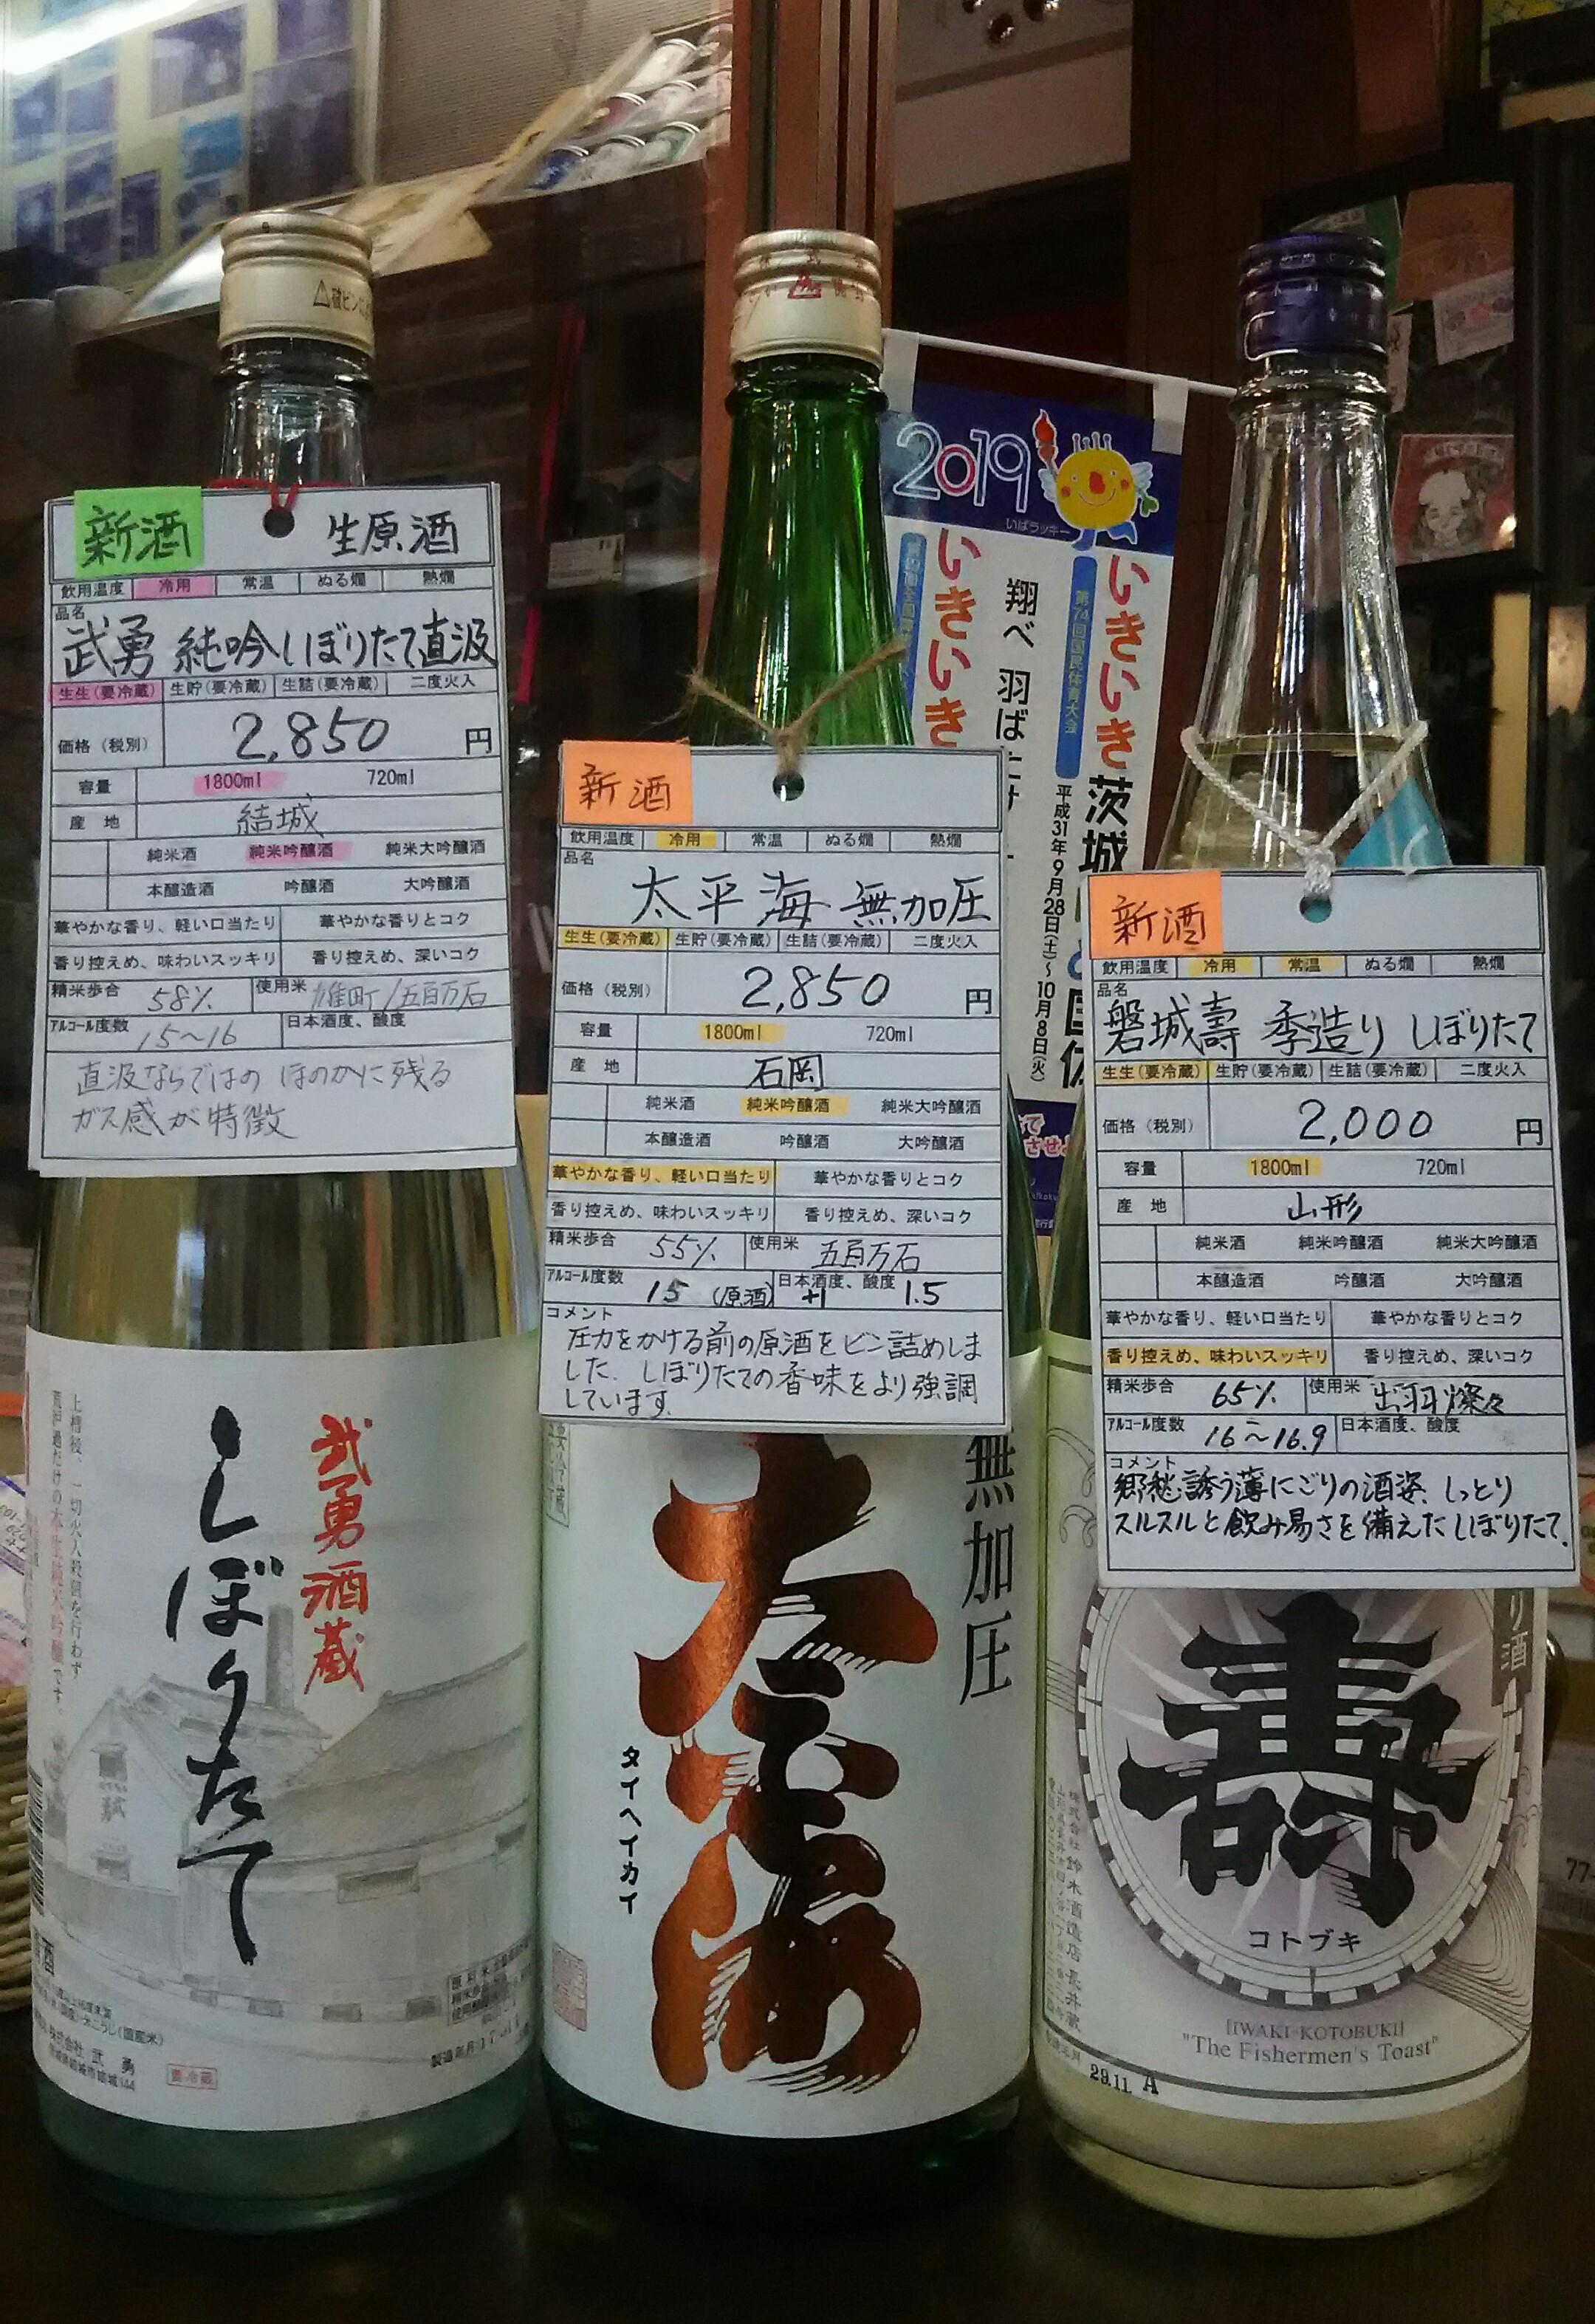 新酒
生原酒
飲用温度 冷用 常温 ぬる燗 熱燗
品名
武勇 純吟しぼりたて直汲
生生(要冷蔵) 生貯(要冷蔵) 生詰(要冷蔵) 二度火入
価格(税別) 2,850 円
容量 1800ml 720ml
産地 結城
純米酒 純米吟醸酒 純米大吟醸酒
本醸造酒 吟醸酒 大吟醸酒
華やかな香り、軽い口当たり 華やかな香りとコク
香り控えめ、味わいスッキリ 香り控えめ、深いコク
精米歩合 58% 使用米 雄町/五百万石
アルコール度数 15~16 日本酒度、酸度
直汲ならではの ほのかに残る
ガス感が特徴
武勇酒蔵
しぼりたて
上槽後、一切火入殺菌を行わず
荒濾過だけの本生純米吟醸です。
株式会社 武勇
要冷蔵
新酒
飲用温度 冷用 常温 ぬる燗 熱燗
品名
太平海 無加圧
生生(要冷蔵) 生貯(要冷蔵) 生詰(要冷蔵) 二度火入
価格(税別) 2,850 円
容量 1800ml 720ml
産地 石岡
純米酒 純米吟醸酒 純米大吟醸酒
本醸造酒 吟醸酒 大吟醸酒
華やかな香り、軽い口当たり 華やかな香りとコク
香り控えめ、味わいスッキリ 香り控えめ、深いコク
精米歩合 55% 使用米 五百万石
アルコール度数 15 (原酒) 日本酒度、酸度 +1 1.5
コメント
圧力をかける前の原酒をビン詰めしま
した. しぼりたての香味をより強調
しています.
無加圧
太平海
タイヘイカイ
2019
いばラッキー
いきいき茨城
第74回国民体育大会
平成31年9月28日(土)~10月8日(火)
翔べ 羽ば
いきいき
新酒
飲用温度 冷用 常温 ぬる燗 熱燗
品名
磐城壽 季造り しぼりたて
生生(要冷蔵) 生貯(要冷蔵) 生詰(要冷蔵) 二度火入
価格(税別) 2,000 円
容量 1800ml 720ml
産地 山形
純米酒 純米吟醸酒 純米大吟醸酒
本醸造酒 吟醸酒 大吟醸酒
華やかな香り、軽い口当たり 華やかな香りとコク
香り控えめ、味わいスッキリ 香り控えめ、深いコク
精米歩合 65% 使用米 出羽燦々
アルコール度数 16~16.9 日本酒度、酸度
コメント
郷愁誘う薄にごりの酒姿、しっとり
スルスルと飲み易さを備えたしぼりたて.
り酒
壽
コトブキ
株式会社鈴木酒造店長井蔵
[IWAKI-KOTOBUKI]
"The Fishermen's Toast"
29.11. A